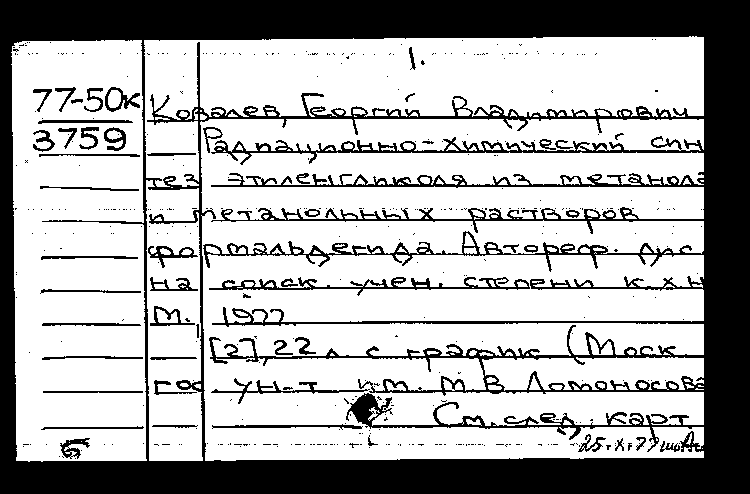 1.
77-50к Ковалев, Георгий Владимирович
3759 Радиационно-химический син
тез этиленгликоля из метанола
и метанольных растворов
формальдегида. Автореф. дис.
на соиск. учен. степени к. х. н
М., 1977.
[2], 22 л. с график (Моск.
гос. ун-т им. М. В. Ломоносова
См. след. карт.
Б 25.X.77